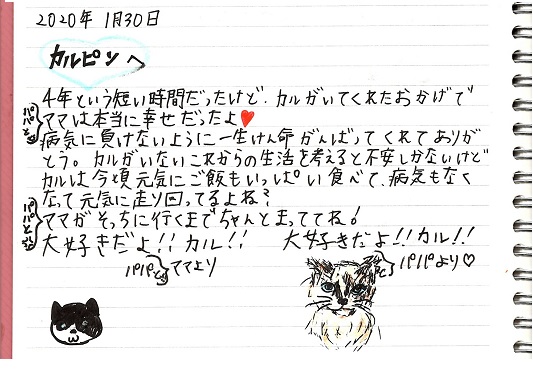 2020年 1月30日
カルピンへ
4年という短い時間だったけど、カルがいてくれたおかげで
パパと ママは本当に幸せだったよ♥
病気に負けないように一生けん命がんばってくれてありが
とう。カルがいないこれからの生活を考えると不安しかないけど
カルは今頃元気にご飯もいっぱい食べて、病気もなく
なって元気に走り回ってるよね?
パパと ママがそっちに行くまでちゃんとまっててね!
大好きだよ!!カル!! 大好きだよ!!カル!!
パパと ママより パパより♡